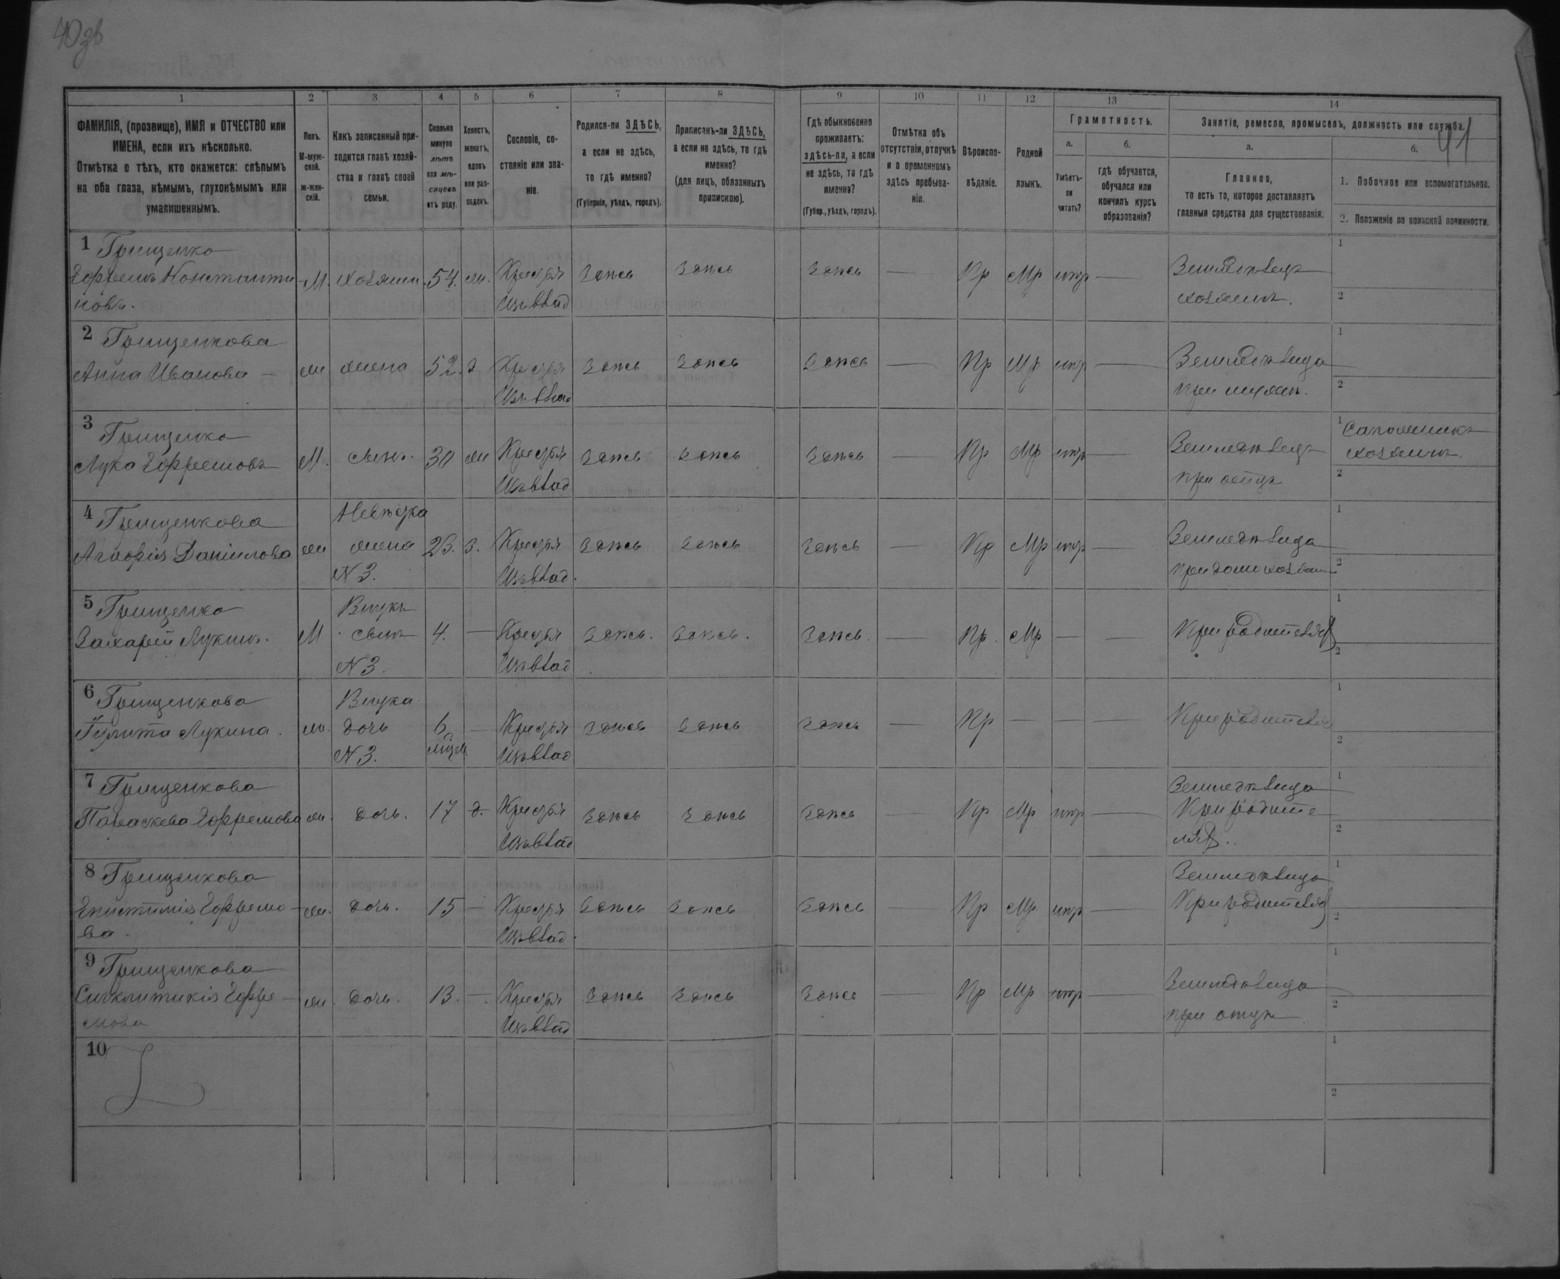 40 зв
41
1
2
3
4
5
6
7
8
9
10
11
12
13
14
ФАМИЛІЯ, (прозвище), ИМЯ и ОТЧЕСТВО или
ИМЕНА, если ихъ нѣсколько.
Отмѣтка о тѣхъ, кто окажется: слѣпымъ
на оба глаза, нѣмымъ, глухонѣмымъ или
умалишеннымъ.
Полъ.
М-муж-
ской.
ж-жен-
скій.
Какъ записанный при-
ходится главѣ хозяй-
ства и главѣ своей
семьи.
Сколько
минуло
лѣтъ
или мѣ-
сяцевъ
отъ роду.
Холостъ,
женатъ,
вдовъ
или раз-
веденъ.
Сословіе, со-
стояніе или зва-
ніе.
Родился-ли ЗДѢСЬ,
а если не здѣсь,
то гдѣ именно?
(Губернія, уѣздъ, городъ).
Приписанъ-ли ЗДѢСЬ,
а если не здѣсь, то гдѣ
именно?
(для лицъ, обязанныхъ
припискою).
Гдѣ обыкновенно
проживаетъ:
здѣсь-ли, а если
не здѣсь, то гдѣ
именно?
(Губер., уѣздъ, городъ).
Отмѣтка объ
отсутствіи, отлучкѣ
и о временномъ
здѣсь пребыва-
ніи.
Вѣроиспо-
вѣданіе.
Родной
языкъ.
Грамотность.
а.
Умѣетъ-
ли
читать?
б.
гдѣ обучается,
обучался или
кончилъ курсъ
образованія?
Занятіе, ремесло, промыселъ, должность или служба.
а.
Главное,
то есть то, которое доставляетъ
главныя средства для существованія.
б.
1. Побочное или вспомогательное.
2. Положеніе по воинской повинности.
1 Грищенко
Ефремъ Константи-
новъ. М. хозяинъ 54. ж. Крестья Изъ влад здѣсь здѣсь здѣсь — Пр Мр нѣтъ — Земледѣлецъ
хозяинъ.
1
2
2 Грищенкова
Анна Иванова — ж жена 52. з Крестья Изъ влад здѣсь здѣсь здѣсь — Пр Мр нѣтъ — Земледѣлица
при мужѣ.
1
2
3 Грищенко
Лука Ефремовъ М. сынъ. 30 ж Крестья Изъ влад здѣсь здѣсь здѣсь — Пр Мр нѣтъ — Земледѣлецъ
при отцѣ
1 Сапожникъ
хозяинъ.
2
4 Грищенкова
Агафія Даніилова ж Невѣстка жена N 3. 26. з. Крестья Изъ влад. здѣсь здѣсь здѣсь — Пр Мр нѣтъ — Земледѣлица
1
2
5 Грищенко
Захарій Лукинъ. М Внукъ сынъ N 3. 4. — Крестья Изъ влад здѣсь. здѣсь. здѣсь — Пр. Мр — — При родителях
1
2
6 Грищенкова
Лукина. ж. Внука дочь N 3. 6 — Крестья Изъ влад здѣсь здѣсь здѣсь — Пр — — — При родителях
1
2
7 Грищенкова
Параскева Ефремова ж. дочь. 17 д. Крестья Изъ влад здѣсь здѣсь здѣсь — Пр Мр нѣтъ — Земледѣлица
При родите
лях.
1
2
8 Грищенкова
Ефремо-
ва. ж. дочь. 15 — Крестья Изъ влад. здѣсь здѣсь здѣсь — Пр Мр нѣтъ — Земледѣлица
При родителях
1
2
9 Грищенкова
Синклитикія Ефре-
мова ж. дочь. 13. — Крестья Изъ влад здѣсь здѣсь здѣсь — Пр Мр нѣтъ — Земледѣлица
при отцѣ
1
2
10
1
2